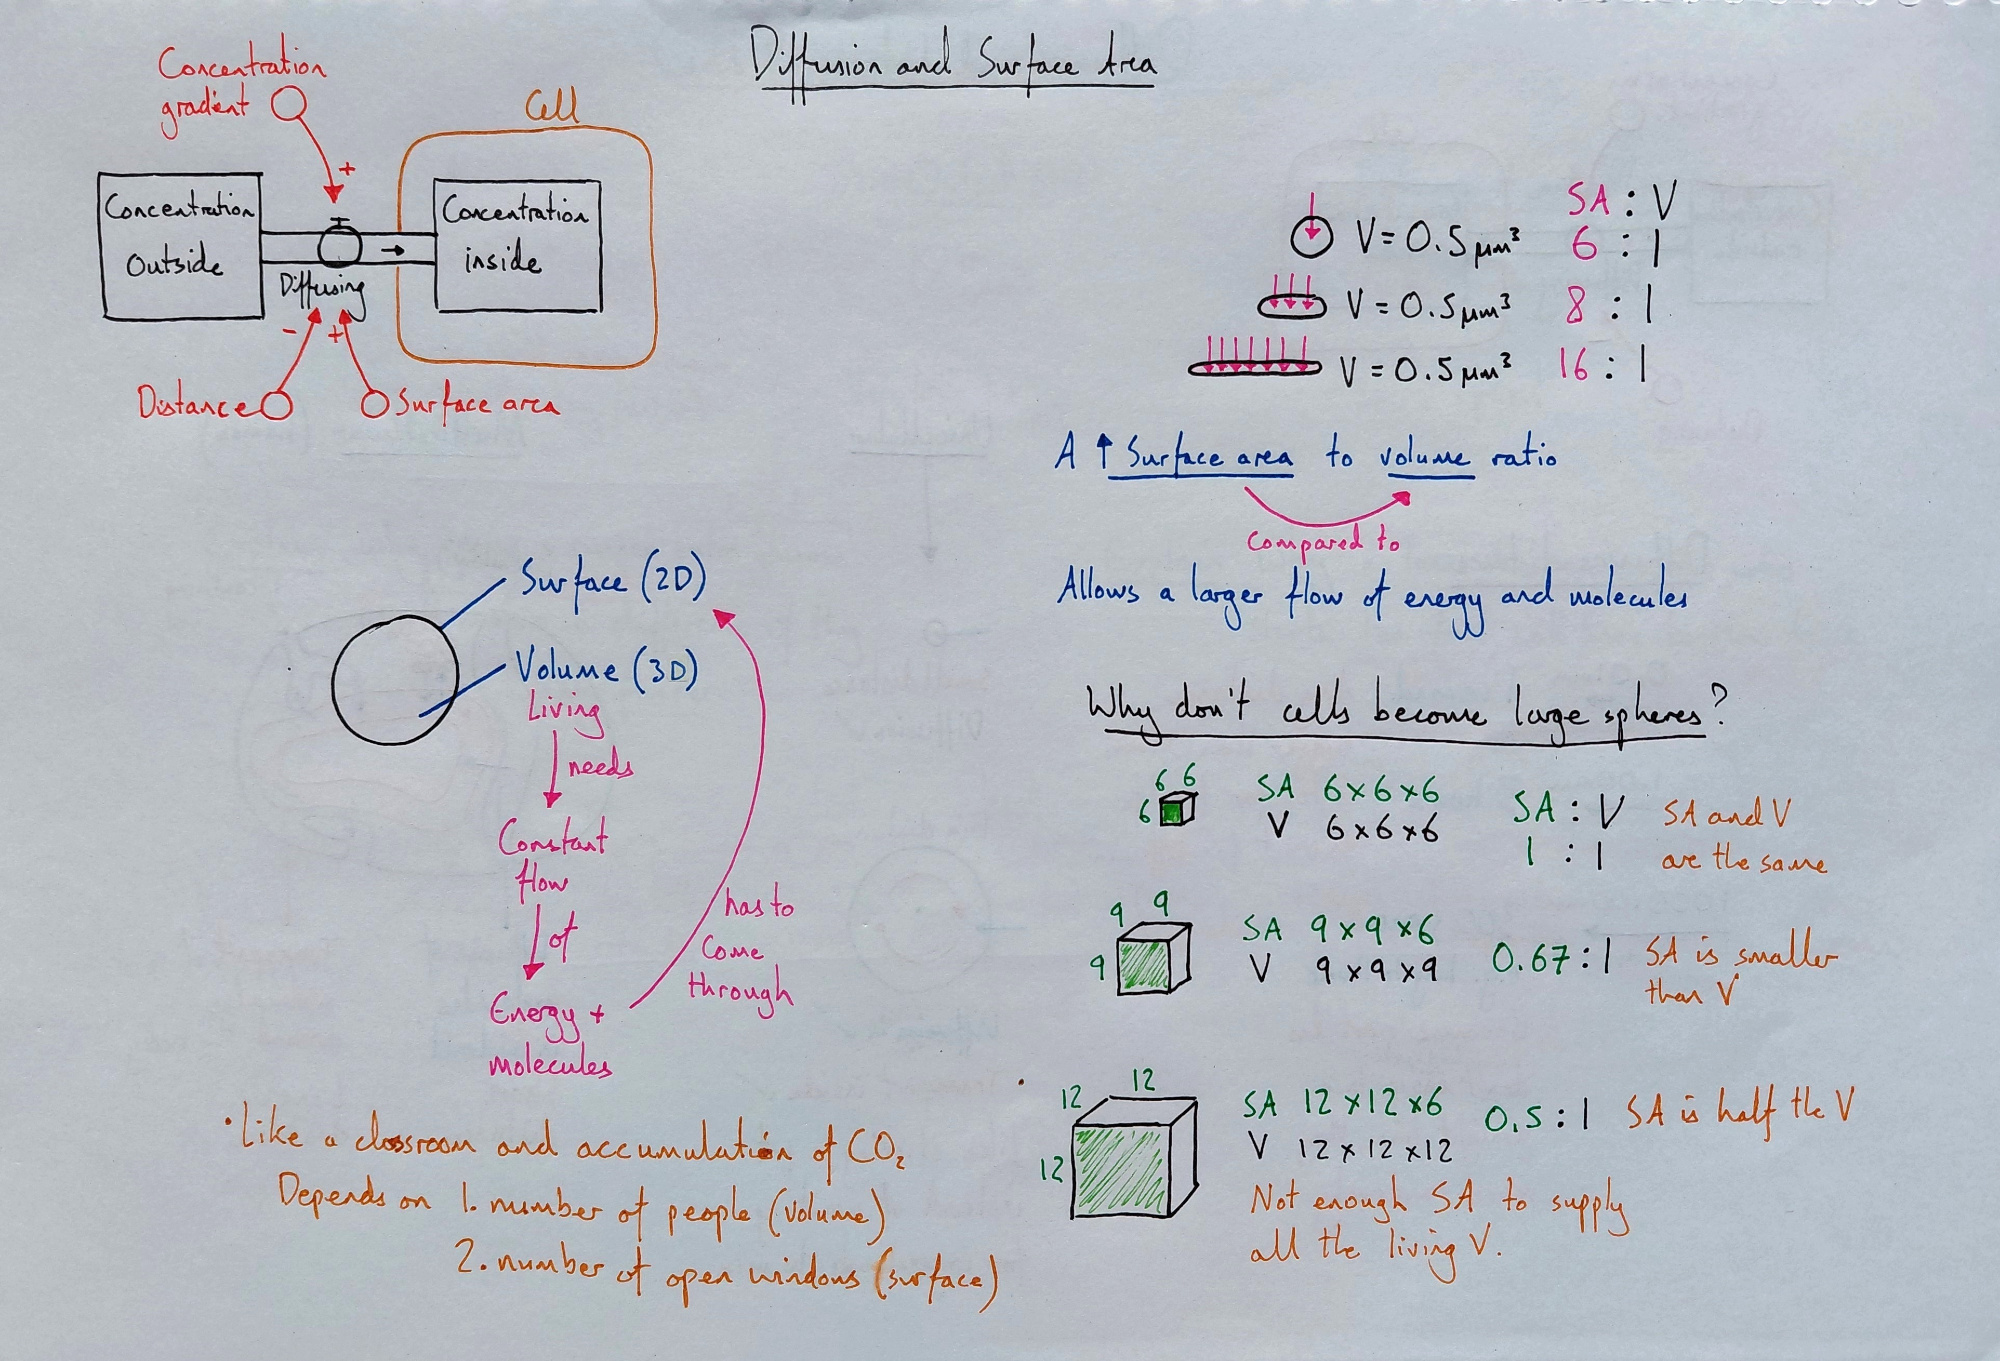 Diffusion and Surface Area
Concentration
gradient
+
Cell
Concentration
Outside
Diffusing
Concentration
inside
-
+
Distance
Surface area
SA : V
V = 0.5 µm³ 6 : 1
V = 0.5 µm³ 8 : 1
V = 0.5 µm³ 16 : 1
A ↑ Surface area to volume ratio
compared to
Allows a larger flow of energy and molecules
Surface (2D)
Volume (3D)
Living
needs
Constant
flow
of
Energy +
molecules
has to
come
through
• Like a classroom and accumulation of CO₂
Depends on 1. number of people (volume)
2. number of open windows (surface)
Why don't cells become large spheres?
6 6
6
SA 6 x 6 x 6
V 6 x 6 x 6
SA : V
1 : 1
SA and V
are the same
9 9
9
SA 9 x 9 x 6
V 9 x 9 x 9
0.67 : 1
SA is smaller
than V
12 12
12
SA 12 x 12 x 6
V 12 x 12 x 12
0.5 : 1
SA is half the V
Not enough SA to supply
all the living V.